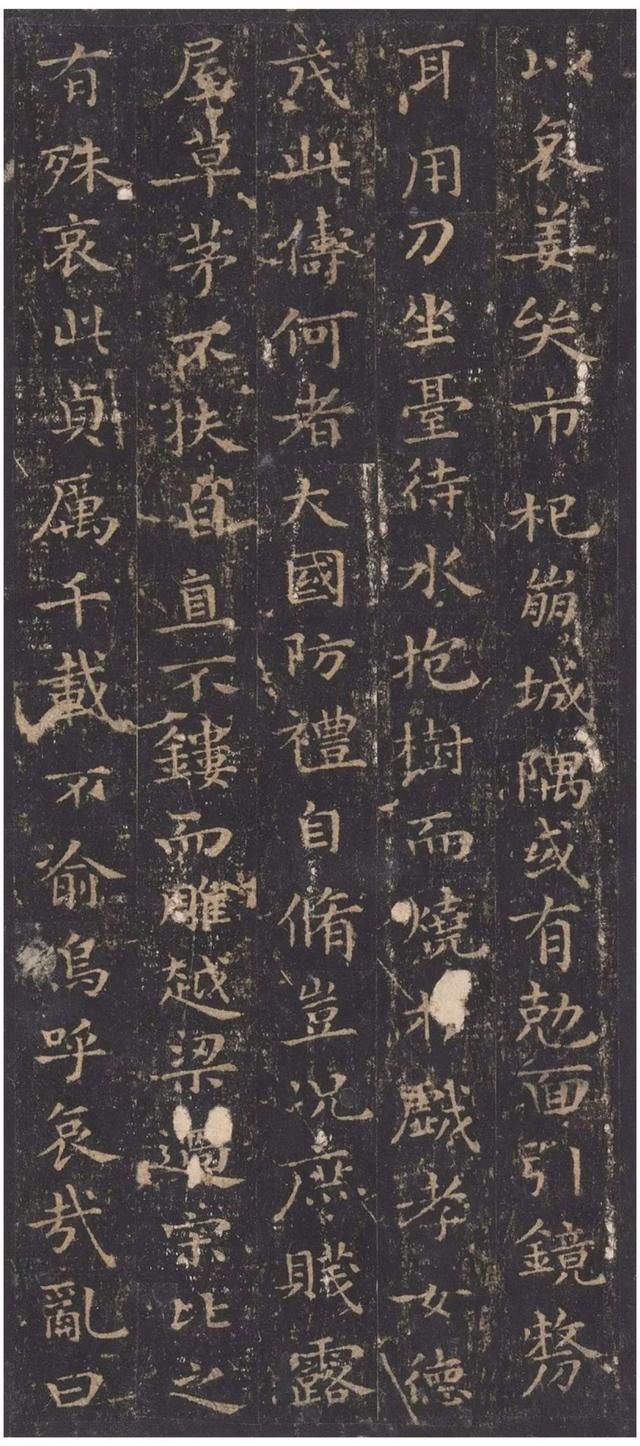 以哀姜哭市杞崩城隅或有尅面引鏡剺
耳用刀坐臺待水抱樹而燒於戲孝女德
茂此儔何者大國防禮自脩豈况庶賤露
屋草茅不扶自直不鏤而雕越梁過宋比之
有殊哀此貞厲千載不渝嗚呼哀哉亂曰